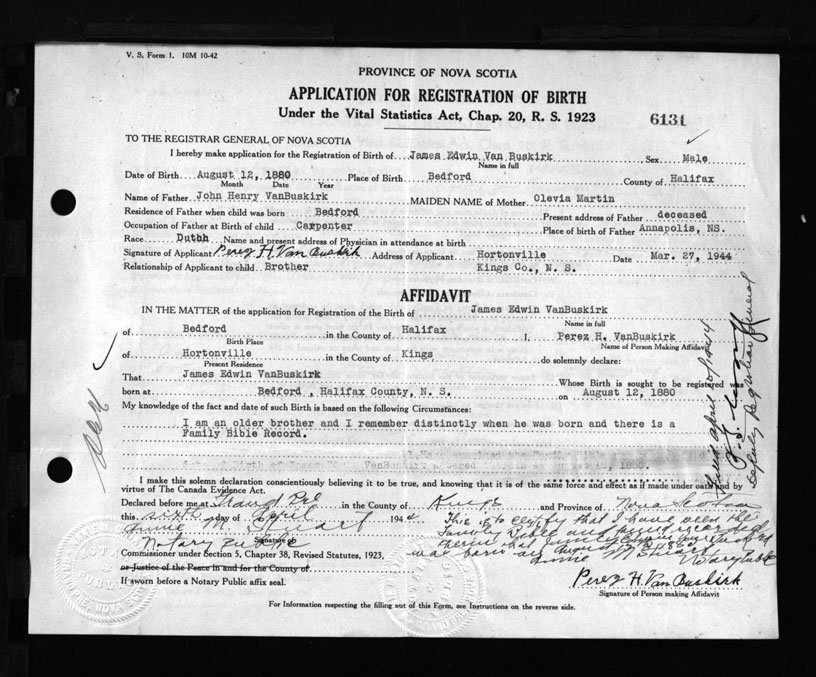 V. S. Form 1. 10M 10-42
PROVINCE OF NOVA SCOTIA
APPLICATION FOR REGISTRATION OF BIRTH
Under the Vital Statistics Act, Chap. 20, R. S. 1923
6131
TO THE REGISTRAR GENERAL OF NOVA SCOTIA
I hereby make application for the Registration of Birth of James Edwin Van Buskirk, Sex Male
Name in full
Date of Birth August 12, 1880 Place of Birth Bedford County of Halifax
Month Date Year
Name of Father John Henry VanBuskirk MAIDEN NAME of Mother Olevia Martin
Residence of Father when child was born Bedford Present address of Father deceased
Occupation of Father at Birth of child Carpenter Place of birth of Father Annapolis, NS.
Race Dutch Name and present address of Physician in attendance at birth
Signature of Applicant Perez H. Van Buskirk Address of Applicant Hortonville Date Mar. 27, 1944
Relationship of Applicant to child Brother Kings Co., N. S.
AFFIDAVIT
IN THE MATTER of the application for Registration of the Birth of James Edwin VanBuskirk
Name in full
of Bedford in the County of Halifax I, Perez H. VanBuskirk
Birth Place Name of Person Making Affidavit
of Hortonville in the County of Kings do solemnly declare:
Present Residence
That James Edwin VanBuskirk Whose Birth is sought to be registered
born at Bedford, Halifax County, N. S. on August 12, 1880
My knowledge of the fact and date of such Birth is based on the following Circumstances:
I am an older brother and I remember distinctly when he was born and there is a
Family Bible Record.
I make this solemn declaration conscientiously believing it to be true, and knowing that it is of the same force and effect as if made under oath and by
virtue of The Canada Evidence Act.
Declared before me at Grand Pré in the County of Kings and Province of Nova Scotia
this sixth day of April 1944
Annie M. Stuart
Signature
Notary Public
Commissioner under Section 5, Chapter 38, Revised Statutes, 1923,
or Justice of the Peace in and for the County of
If sworn before a Notary Public affix seal.
This is to certify that I have seen the
Family Bible and find recorded
therein that James Edwin
was born on August 12 1880
Annie M Stuart Notary Public
Perez H. Van Buskirk
Signature of Person making Affidavit
For Information respecting the filling out of this Form, see Instructions on the reverse side.
Filed April
Deputy Registrar General